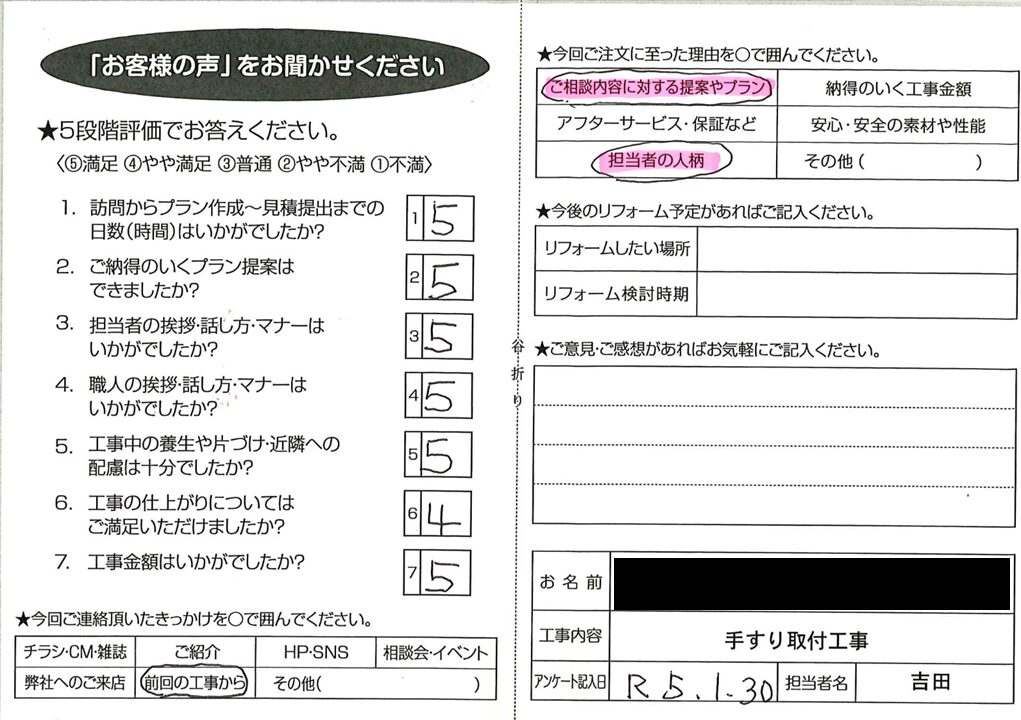 「お客様の声」をお聞かせください
★5段階評価でお答えください。
〈⑤満足 ④やや満足 ③普通 ②やや不満 ①不満〉
1. 訪問からプラン作成〜見積提出までの
日数(時間)はいかがでしたか?
1 5
2. ご納得のいくプラン提案は
できましたか?
2 5
3. 担当者の挨拶・話し方・マナーは
いかがでしたか?
3 5
4. 職人の挨拶・話し方・マナーは
いかがでしたか?
4 5
5. 工事中の養生や片づけ・近隣への
配慮は十分でしたか?
5 5
6. 工事の仕上がりについては
ご満足いただけましたか?
6 4
7. 工事金額はいかがでしたか?
7 5
★今回ご連絡頂いたきっかけを〇で囲んでください。
チラシ・CM・雑誌 ご紹介 HP・SNS 相談会・イベント
弊社へのご来店 前回の工事から その他( )
谷折り
★今回ご注文に至った理由を〇で囲んでください。
ご相談内容に対する提案やプラン 納得のいく工事金額
アフターサービス・保証など 安心・安全の素材や性能
担当者の人柄 その他( )
★今後のリフォーム予定があればご記入ください。
リフォームしたい場所
リフォーム検討時期
★ご意見・ご感想があればお気軽にご記入ください。
お名前
工事内容 手すり取付工事
アンケート記入日 R5.1.30 担当者名 吉田